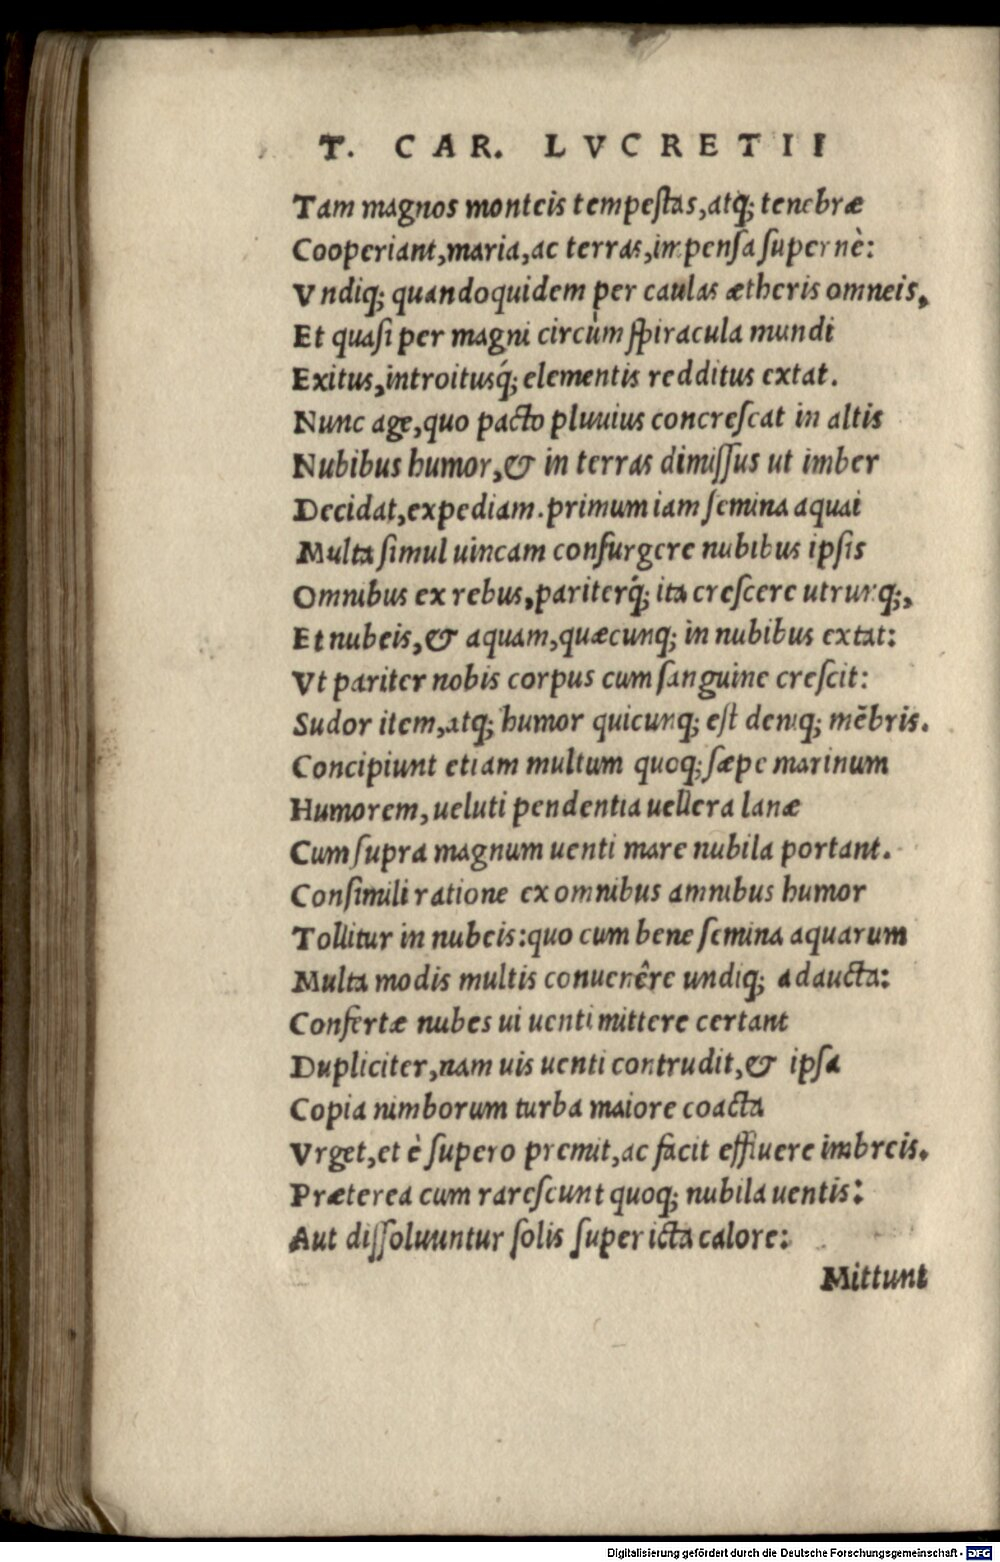 T. CAR. LVCRETII
Tam magnos monteis tempeſtas, atq; tenebræ
Cooperiant, maria, ac terras, impenſa ſupernè:
Vndiq; quandoquidem per caulas ætheris omneis,
Et quaſi per magni circùm ſpiracula mundi
Exitus, introitusq́; elementis redditus extat.
Nunc age, quo pacto pluuius concreſcat in altis
Nubibus humor, & in terras dimiſſus ut imber
Decidat, expediam. primum iam ſemina aquai
Multa ſimul uincam conſurgere nubibus ipſis
Omnibus ex rebus, pariterq́; ita creſcere utrunq;,
Et nubeis, & aquam, quæcunq; in nubibus extat:
Vt pariter nobis corpus cum ſanguine creſcit:
Sudor item, atq; humor quicunq; eſt deniq; mēbris.
Concipiunt etiam multum quoq; ſæpe marinum
Humorem, ueluti pendentia uellera lanæ
Cum ſupra magnum uenti mare nubila portant.
Conſimili ratione ex omnibus amnibus humor
Tollitur in nubeis: quo cum bene ſemina aquarum
Multa modis multis conuenêre undiq; adaucta:
Confertæ nubes ui uenti mittere certant
Dupliciter, nam uis uenti contrudit, & ipſa
Copia nimborum turba maiore coacta
Vrget, et è ſupero premit, ac facit effluere imbreis.
Præterea cum rareſcunt quoq; nubila uentis:
Aut diſſoluuntur ſolis ſuper icta calore:
Mittunt
Digitalisierung gefördert durch die Deutsche Forschungsgemeinschaft - DFG